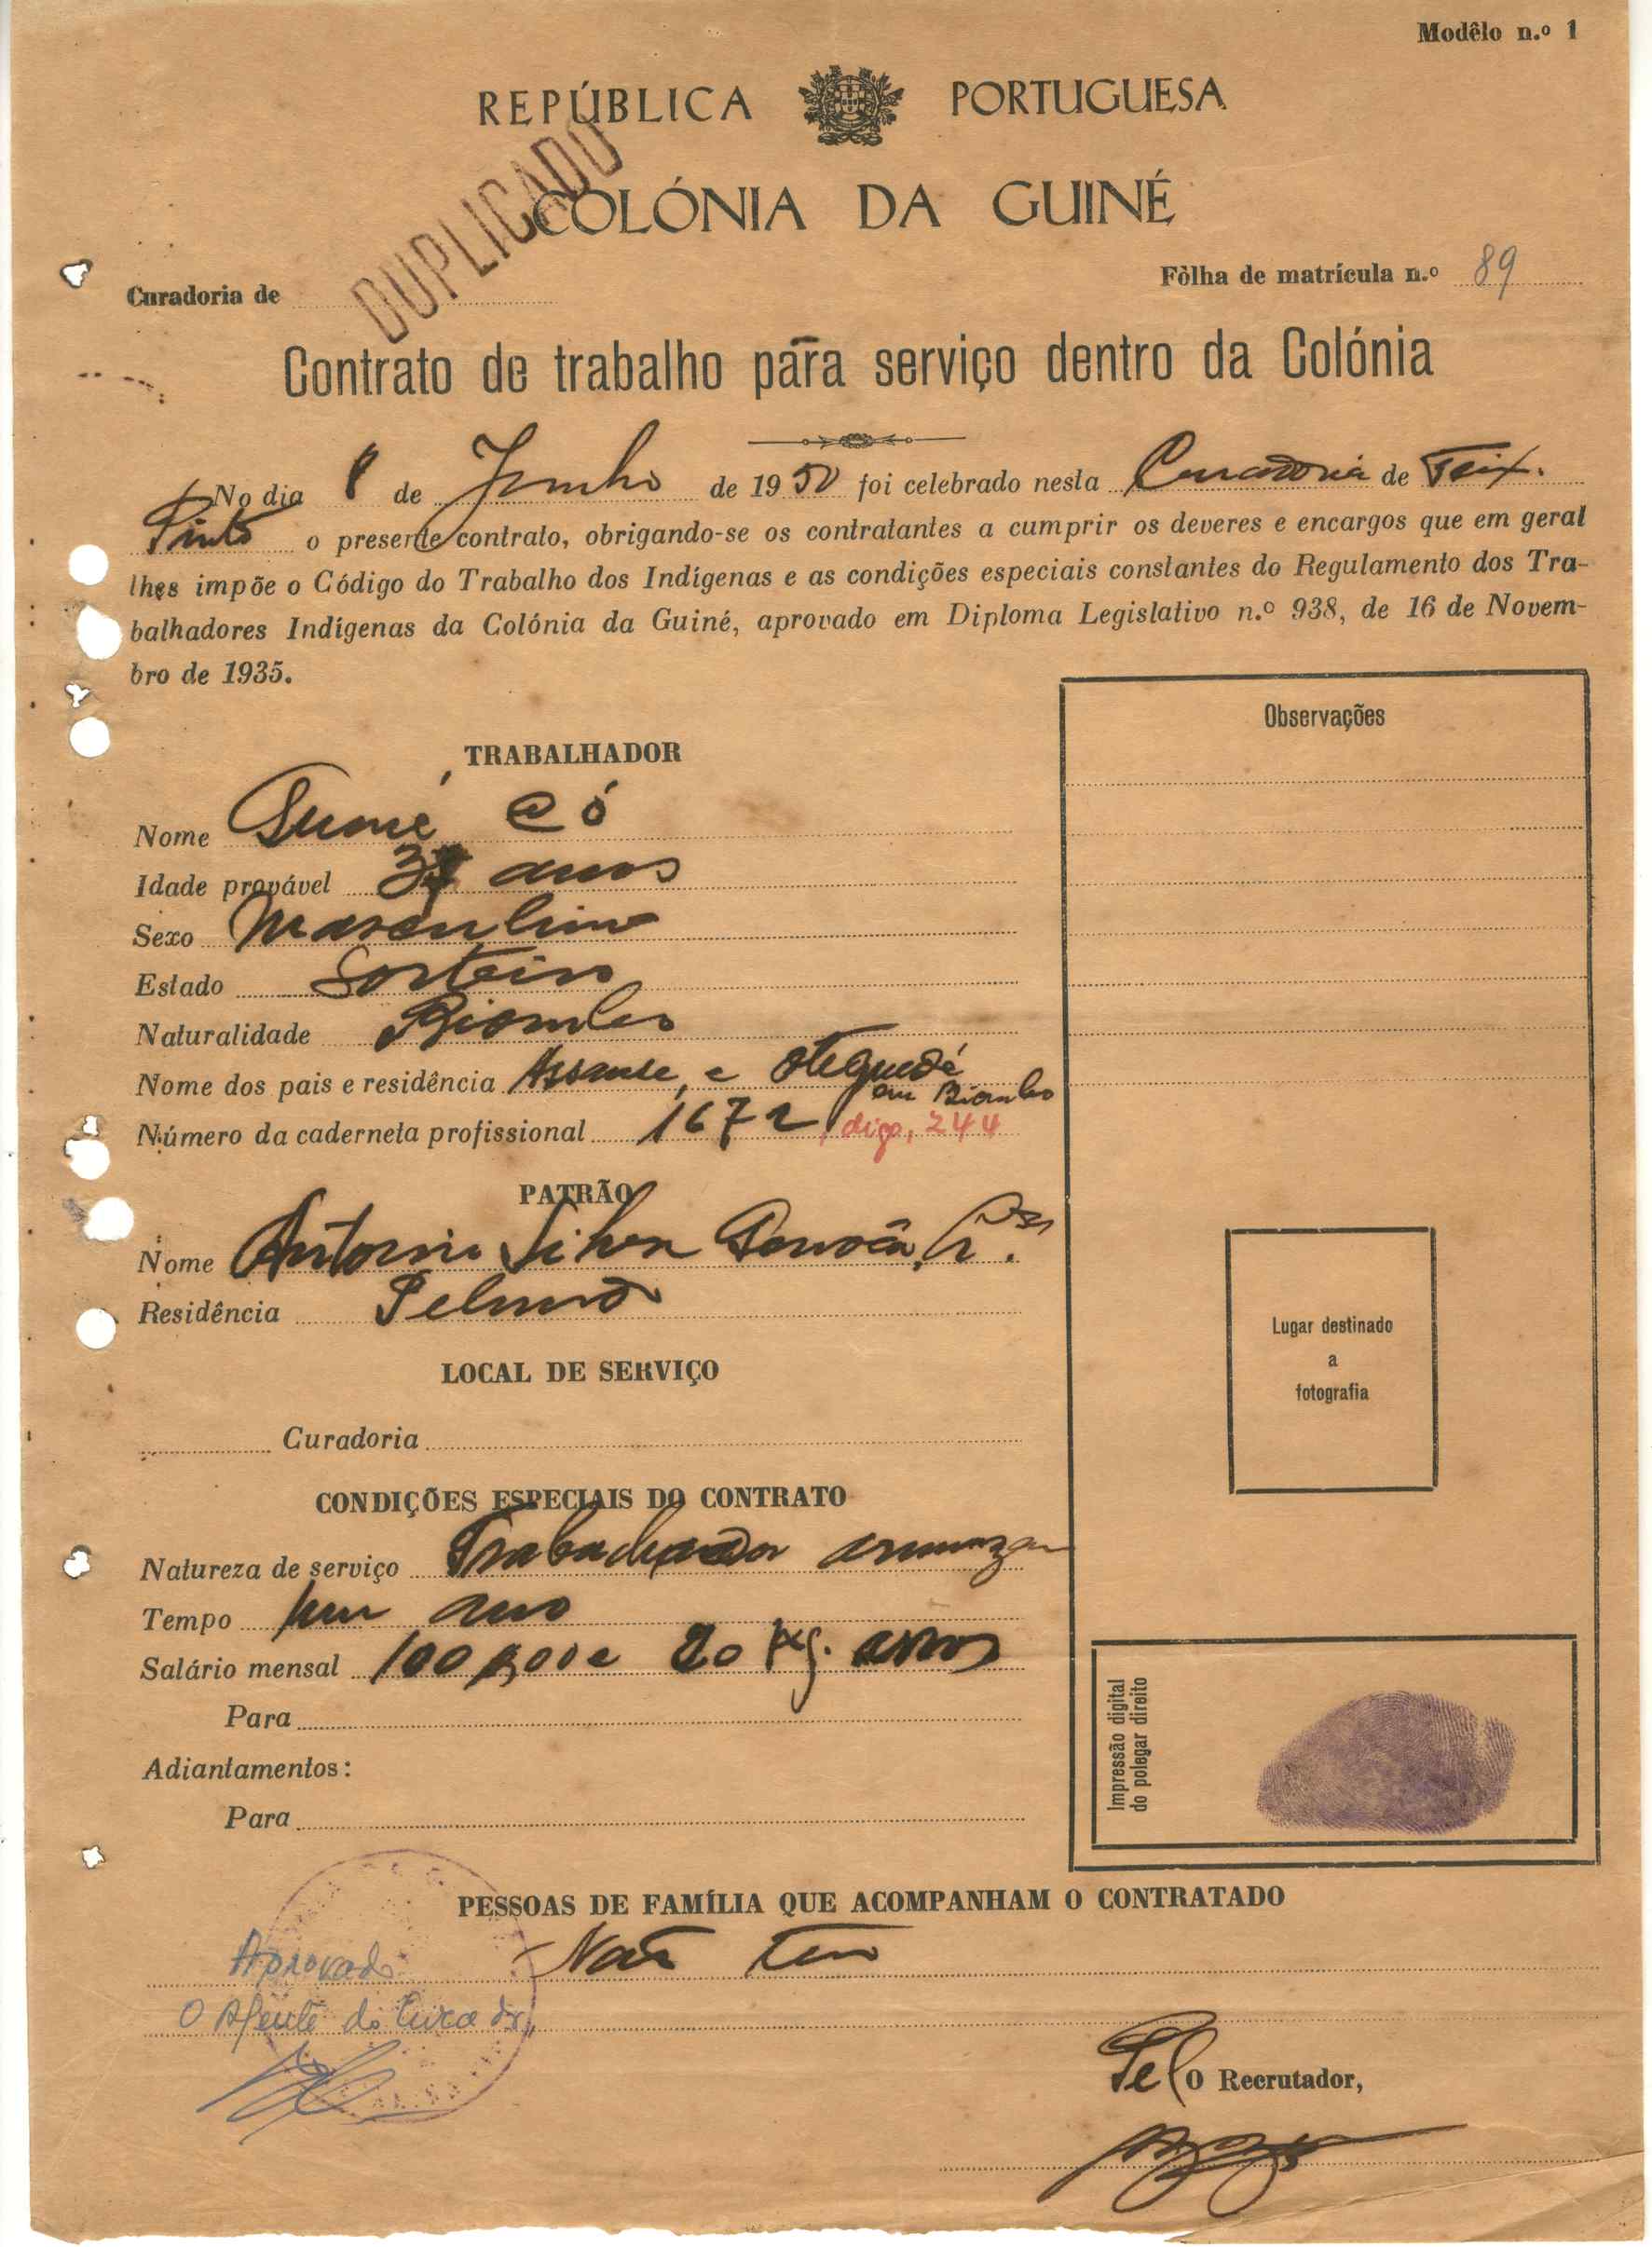 Modêlo n.º 1
REPÚBLICA PORTUGUESA
DUPLICADO
COLÓNIA DA GUINÉ
Curadoria de
Fôlha de matrícula n.º 89
Contrato de trabalho para serviço dentro da Colónia
No dia 8 de Junho de 1950 foi celebrado nesta Curadoria de Teix.
Pinto o presente contrato, obrigando-se os contratantes a cumprir os deveres e encargos que em geral
lhes impõe o Código do Trabalho dos Indígenas e as condições especiais constantes do Regulamento dos Tra-
balhadores Indígenas da Colónia da Guiné, aprovado em Diploma Legislativo n.º 938, de 16 de Novem-
bro de 1935.
Observações
TRABALHADOR
Nome Sumé Có
Idade provável anos
Sexo Masculino
Estado Solteiro
Naturalidade Biombo
Nome dos pais e residência e
em Biombo
Número da caderneta profissional 1672, digo, 244
PATRÃO
Nome António Silva Gouvêa,
Residência Pelundo
LOCAL DE SERVIÇO
Curadoria
Lugar destinado
a
fotografia
CONDIÇÕES ESPECIAIS DO CONTRATO
Natureza de serviço Trabalhador armazem
Tempo hum ano
Salário mensal 100$00 e 20 kg. arroz
Para
Adiantamentos:
Para
Impressão digital
do polegar direito
PESSOAS DE FAMÍLIA QUE ACOMPANHAM O CONTRATADO
Não tem
Aprovado
O Agente do Curador,
Pel O Recrutador,